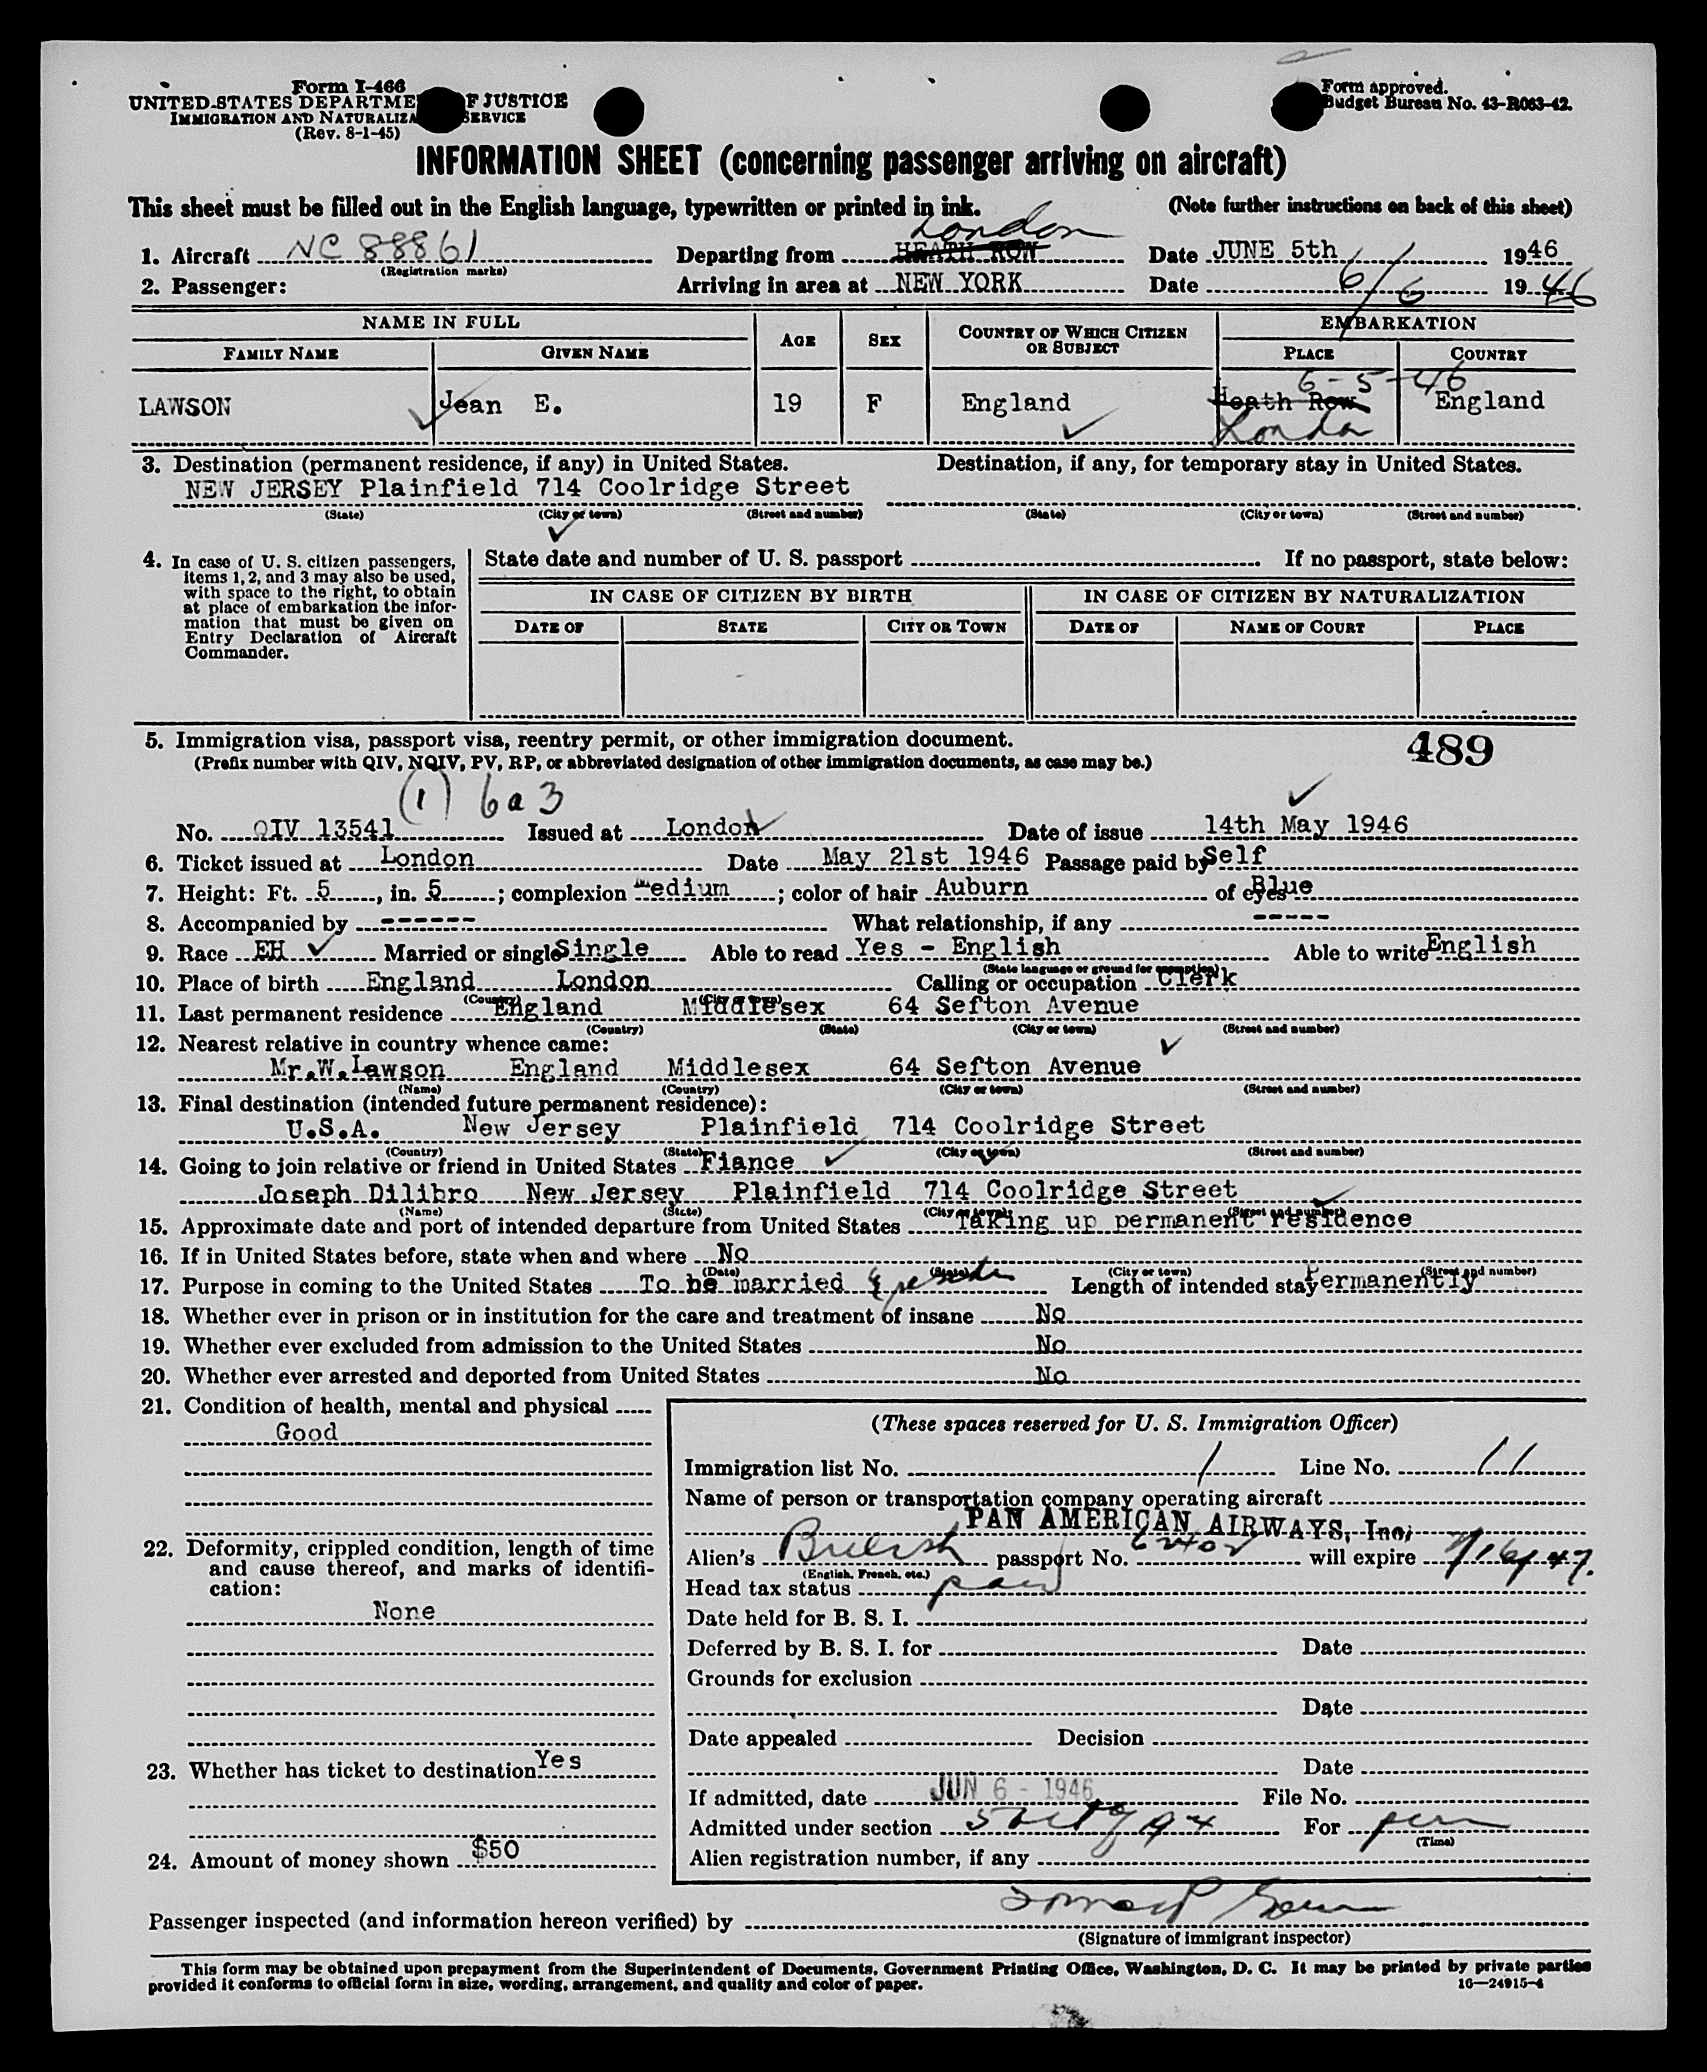 Form I-466
UNITED STATES DEPARTME F JUSTICE
IMMIGRATION AND NATURALIZA SERVICE
(Rev. 8-1-45)
Form approved.
Budget Bureau No. 43-R063-42.
INFORMATION SHEET (concerning passenger arriving on aircraft)
This sheet must be filled out in the English language, typewritten or printed in ink. (Note further instructions on back of this sheet)
London
1. Aircraft NC 88861 Departing from HEATH ROW Date JUNE 5th 1946
(Registration marks)
2. Passenger: Arriving in area at NEW YORK Date 6/6 1946
NAME IN FULL AGE SEX COUNTRY OF WHICH CITIZEN OR SUBJECT EMBARKATION
FAMILY NAME GIVEN NAME PLACE COUNTRY
6-5-46
LAWSON Jean E. 19 F England Heath Row England
London
3. Destination (permanent residence, if any) in United States. Destination, if any, for temporary stay in United States.
NEW JERSEY Plainfield 714 Coolridge Street
(State) (City or town) (Street and number) (State) (City or town) (Street and number)
4. In case of U. S. citizen passengers, items 1, 2, and 3 may also be used, with space to the right, to obtain at place of embarkation the information that must be given on Entry Declaration of Aircraft Commander.
State date and number of U. S. passport If no passport, state below:
IN CASE OF CITIZEN BY BIRTH IN CASE OF CITIZEN BY NATURALIZATION
DATE OF STATE CITY OR TOWN DATE OF NAME OF COURT PLACE
5. Immigration visa, passport visa, reentry permit, or other immigration document. 489
(Prefix number with QIV, NQIV, PV, RP, or abbreviated designation of other immigration documents, as case may be.)
(1) 6a3
No. QIV 13541 Issued at London Date of issue 14th May 1946
6. Ticket issued at London Date May 21st 1946 Passage paid by Self
7. Height: Ft. 5, in. 5; complexion Medium; color of hair Auburn of eyes Blue
8. Accompanied by ------ What relationship, if any -----
9. Race EH Married or single Single Able to read Yes - English Able to write English
(State language or ground for exemption)
10. Place of birth England London Calling or occupation Clerk
(Country) (City or town)
11. Last permanent residence England Middlesex 64 Sefton Avenue
(Country) (State) (City or town) (Street and number)
12. Nearest relative in country whence came:
Mr.W.Lawson England Middlesex 64 Sefton Avenue
(Name) (Country) (City or town) (Street and number)
13. Final destination (intended future permanent residence):
U.S.A. New Jersey Plainfield 714 Coolridge Street
(Country) (State) (City or town) (Street and number)
14. Going to join relative or friend in United States Fiance
Joseph Dilibro New Jersey Plainfield 714 Coolridge Street
(Name) (State) (City or town) (Street and number)
15. Approximate date and port of intended departure from United States Taking up permanent residence
16. If in United States before, state when and where No
(Date) (State) (City or town) (Street and number)
17. Purpose in coming to the United States To be married & reside Length of intended stay Permanently
18. Whether ever in prison or in institution for the care and treatment of insane No
19. Whether ever excluded from admission to the United States No
20. Whether ever arrested and deported from United States No
21. Condition of health, mental and physical
Good
22. Deformity, crippled condition, length of time and cause thereof, and marks of identification:
None
23. Whether has ticket to destination Yes
24. Amount of money shown $50
(These spaces reserved for U. S. Immigration Officer)
Immigration list No. 1 Line No. 11
Name of person or transportation company operating aircraft
PAN AMERICAN AIRWAYS, Inc.
Alien's British passport No. will expire
(English, French, etc.)
Head tax status paid
Date held for B. S. I.
Deferred by B. S. I. for Date
Grounds for exclusion
Date
Date appealed Decision
Date
If admitted, date JUN 6 - 1946 File No.
Admitted under section For perm
(Time)
Alien registration number, if any
Passenger inspected (and information hereon verified) by
(Signature of immigrant inspector)
This form may be obtained upon prepayment from the Superintendent of Documents, Government Printing Office, Washington, D. C. It may be printed by private parties
provided it conforms to official form in size, wording, arrangement, and quality and color of paper. 16—24915-4